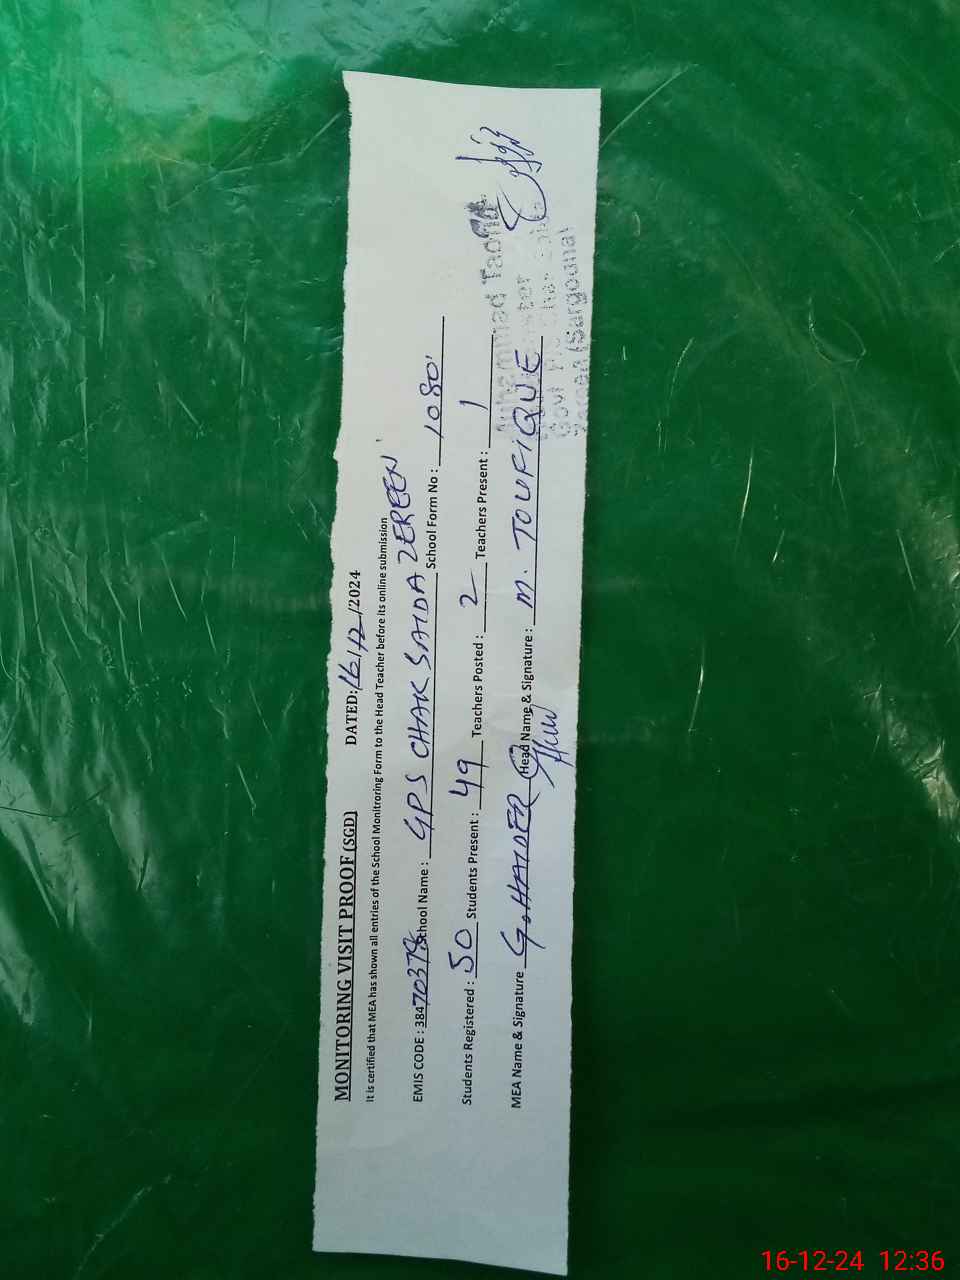 MONITORING VISIT PROOF (SGD) DATED: 16/12/2024
It is certified that MEA has shown all entries of the School Monitroring Form to the Head Teacher before its online submission
EMIS CODE : 38470378 School Name : GPS CHAK SAIDA ZEREEN School Form No : 1080
Students Registered : 50 Students Present : 49 Teachers Posted : 2 Teachers Present : 1
MEA Name & Signature G. HAIDER Head Name & Signature : M. TOUFIQUE
Muhammad
Govt
(Sargodha)
16-12-24 12:36